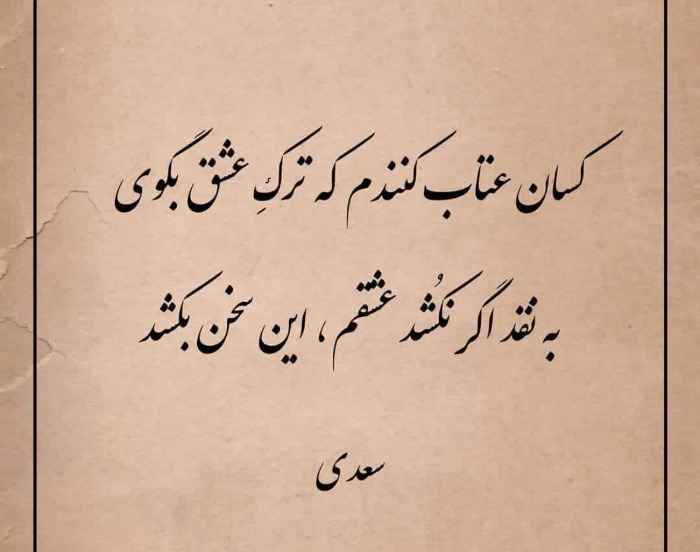 کسان عتاب کنندم که ترکِ عشق بگوی
به نقد اگر نکُشد عشقم، این سخن بکشد
سعدی